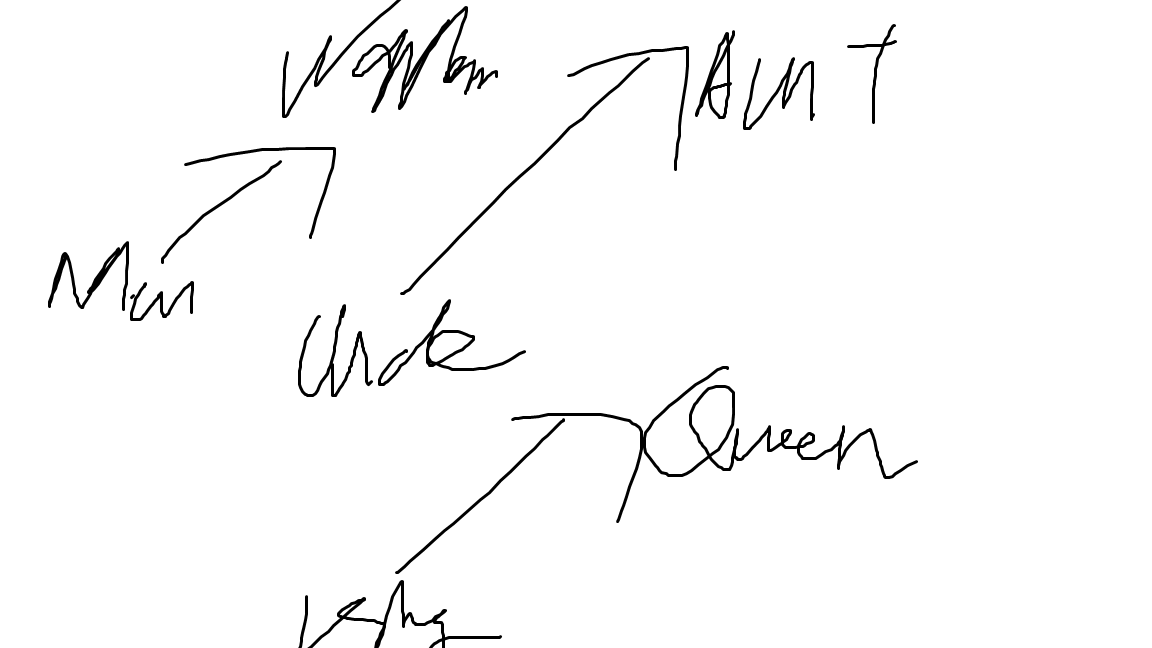 Woman
AUNT
Man
Uncle
Queen
King